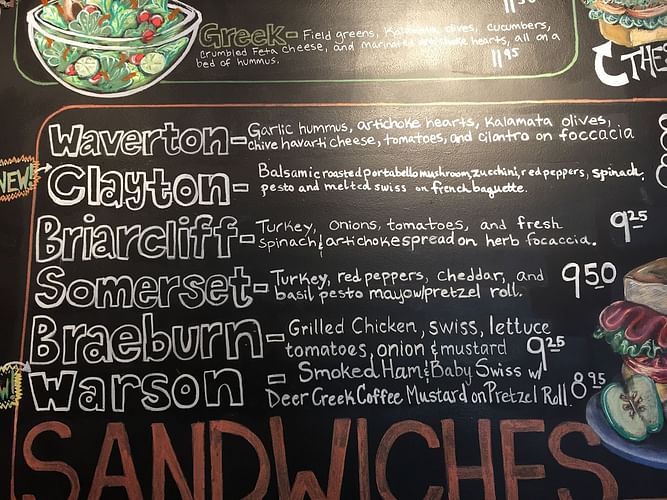 11 50
Greek- Field greens, Kalamata olives, cucumbers,
crumbled Feta cheese, and marinated artichoke hearts, all on a
bed of hummus. 11 95
THE
Waverton- Garlic hummus, artichoke hearts, Kalamata olives,
chive havarti cheese, tomatoes, and cilantro on foccacia
NEW!
Clayton- Balsamic roasted portabello mushroom, zucchini, red peppers, spinach,
pesto and melted swiss on french baguette.
Briarcliff- Turkey, onions, tomatoes, and fresh
spinach & artichoke spread on herb focaccia. 9 25
Somerset- Turkey, red peppers, cheddar, and
basil pesto mayo w/pretzel roll. 9 50
Braeburn- Grilled Chicken, swiss, lettuce
tomatoes, onion & mustard 9 25
Warson - Smoked Ham & Baby Swiss w/
Deer Creek Coffee Mustard on Pretzel Roll. 8 95
SANDWICHES